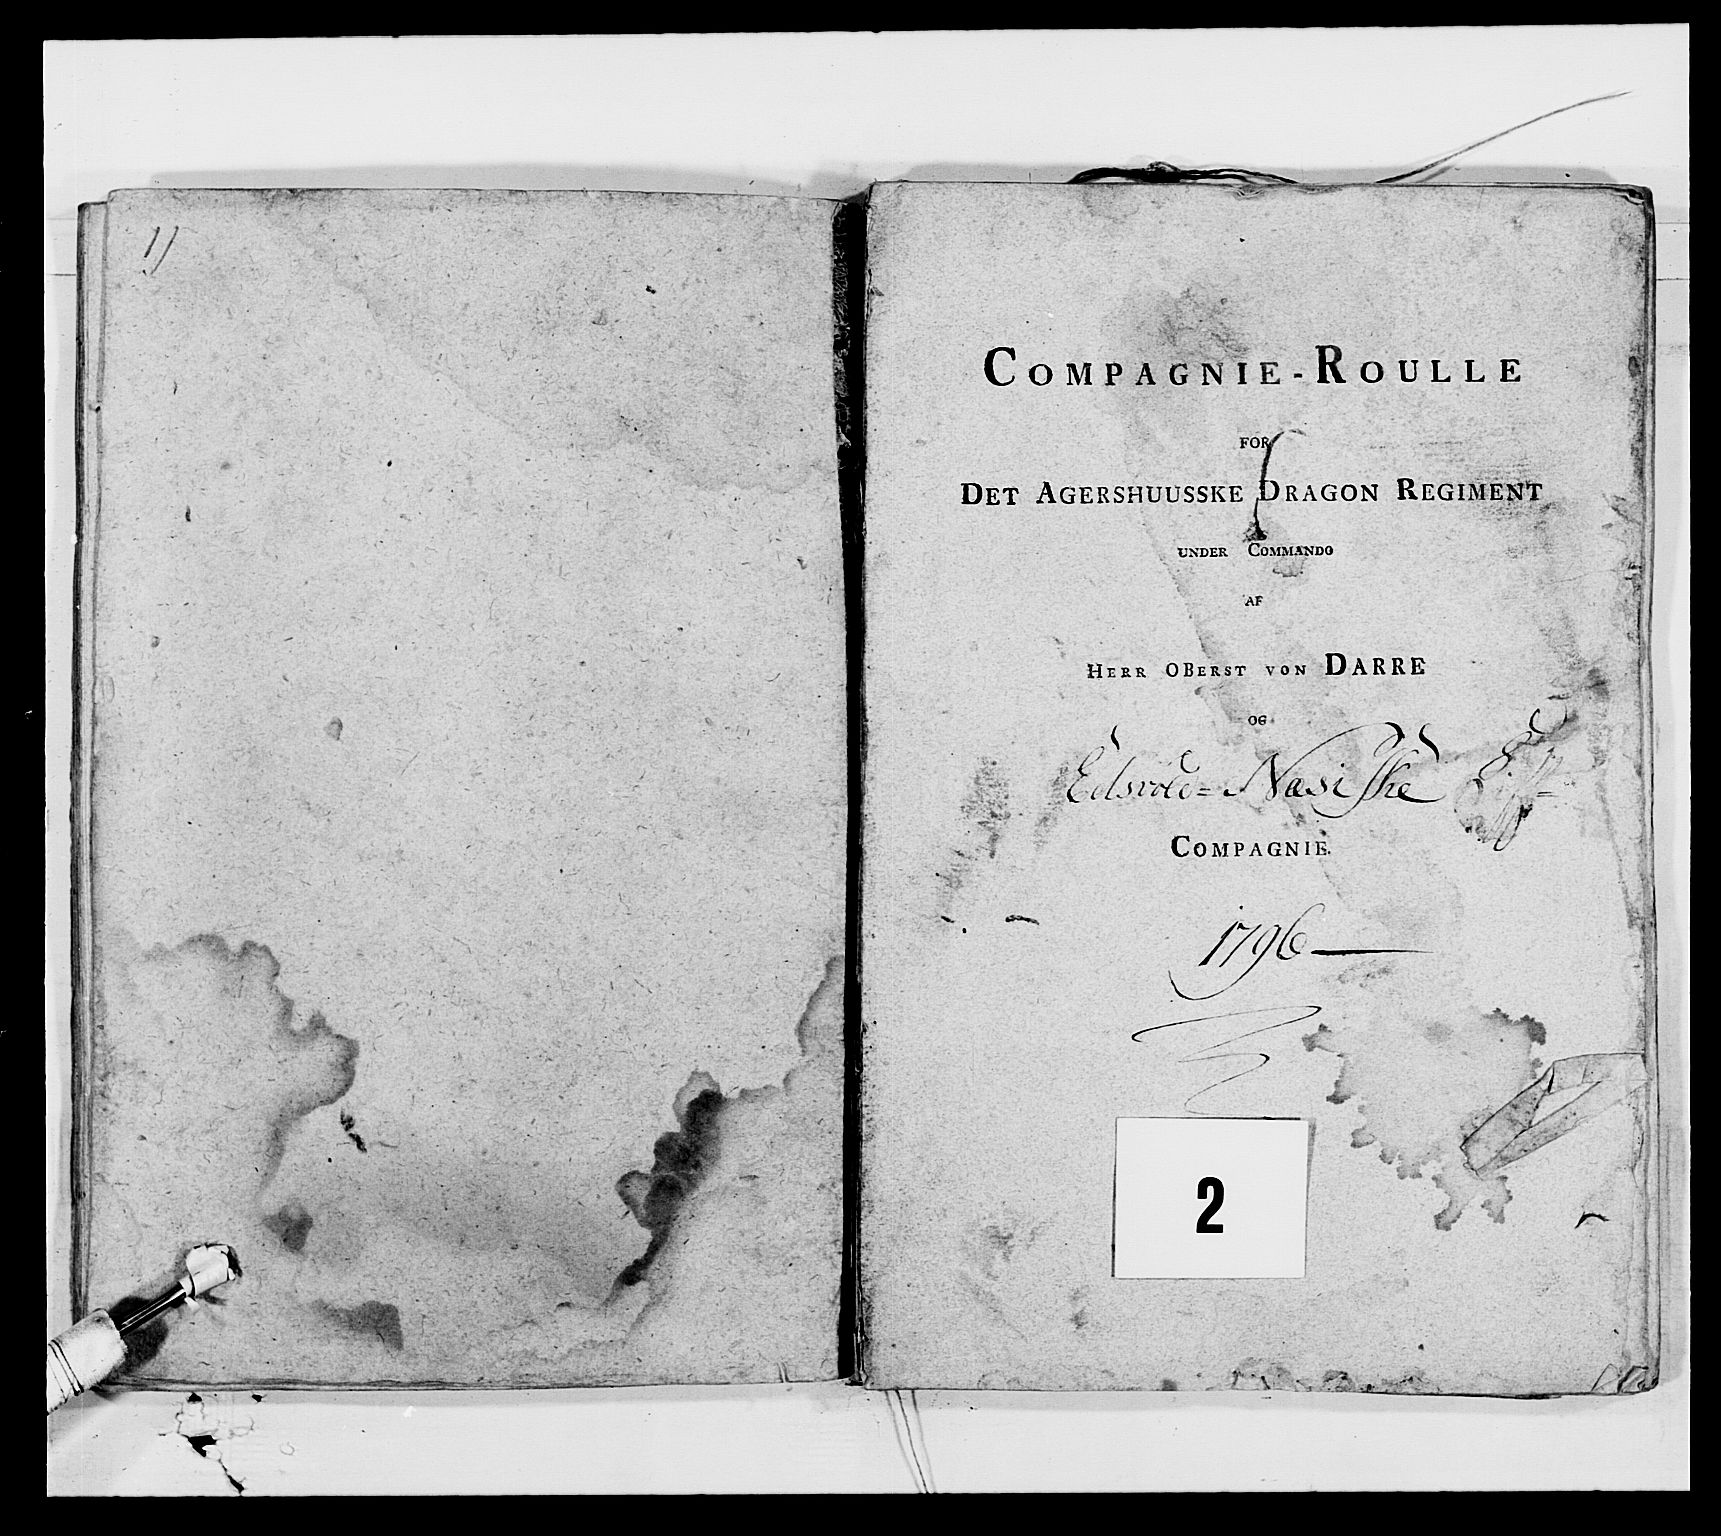 11
COMPAGNIE-ROULLE
FOR
DET AGERSHUUSSKE DRAGON REGIMENT
UNDER COMMANDO
AF
HERR OBERST VON DARRE
OG
Edsvold= Næsiske
COMPAGNIE.
1796
2